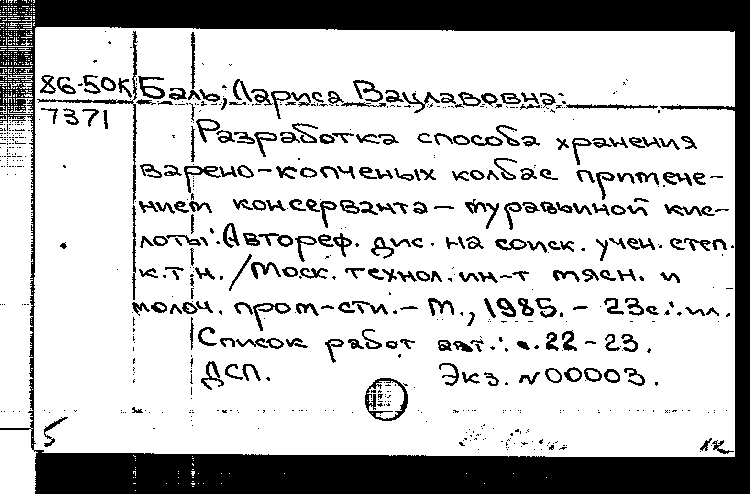 86-50К Баль, Лариса Вацлавовна:
7371
Разработка способа хранения
варено-копченых колбас примене-
нием консерванта - муравьиной кис-
лоты: Автореф. дис. на соиск. учен. степ.
к.т.н. /Моск. технол. ин-т мясн. и
молоч. пром-сти. - М., 1985. - 23с.: ил.
Список работ авт.: с. 22-23.
ДСП. Экз. N00003.
5